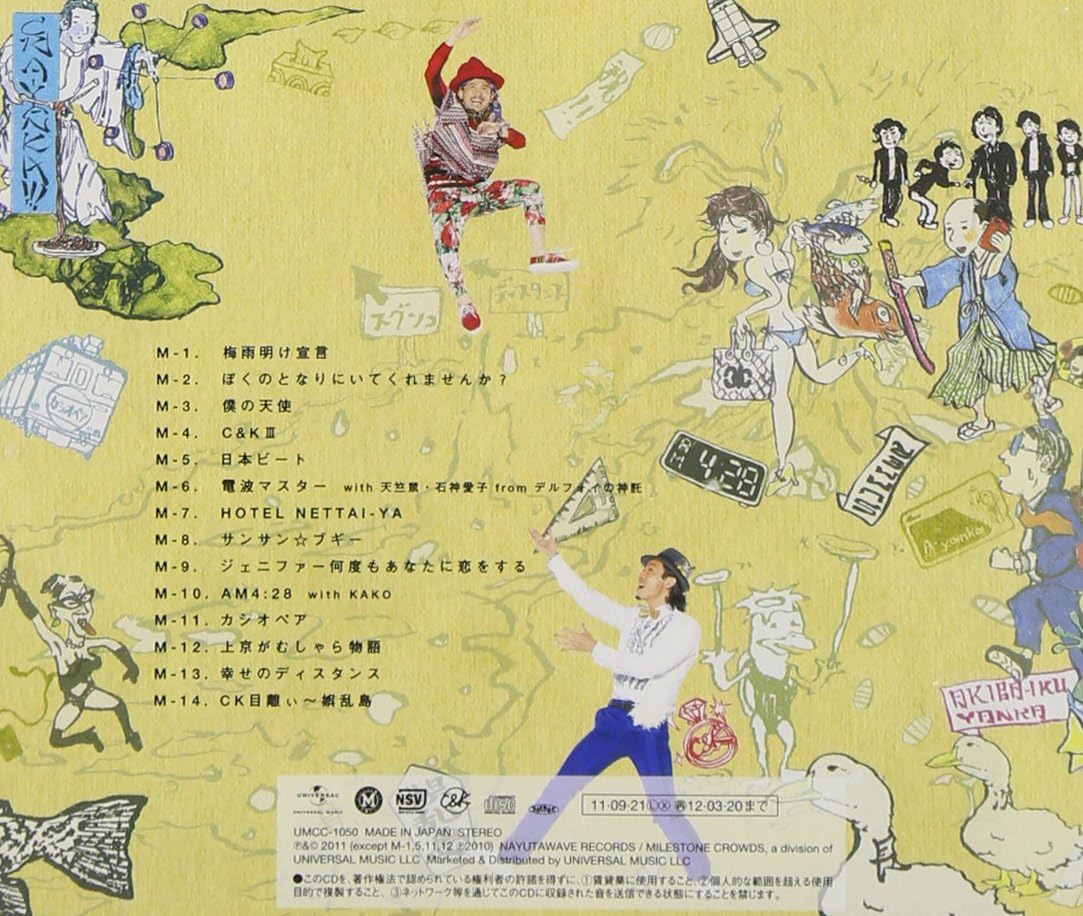 祝
スグソコ
ディスタンス
M-1. 梅雨明け宣言
M-2. ぼくのとなりにいてくれませんか？
M-3. 僕の天使
M-4. C&KⅢ
M-5. 日本ビート
M-6. 電波マスター with 天竺鼠・石神愛子 from デルフォイの神託
M-7. HOTEL NETTAI-YA
M-8. サンサン☆ブギー
M-9. ジェニファー何度もあなたに恋をする
M-10. AM4:28 with KAKO
M-11. カシオペア
M-12. 上京がむしゃら物語
M-13. 幸せのディスタンス
M-14. CK目離ぃ～娯乱島
カシオペア
AM 4:28
A-yankas
AKIBA-IKU
YANKA
C&K
UNIVERSAL
UNIVERSAL MUSIC
M
NSV
C&K
COMPACT disc DIGITAL AUDIO
11・09・21ⓁⓍ㋮12・03・20まで
UMCC-1050 MADE IN JAPAN STEREO
℗&© 2011 (except M-1,5,11,12 ℗2010) NAYUTAWAVE RECORDS / MILESTONE CROWDS, a division of
UNIVERSAL MUSIC LLC Marketed & Distributed by UNIVERSAL MUSIC LLC
●このCDを、著作権法で認められている権利者の許諾を得ずに、①賃貸業に使用すること、②個人的な範囲を超える使用
目的で複製すること、③ネットワーク等を通じてこのCDに収録された音を送信できる状態にすることを禁じます。